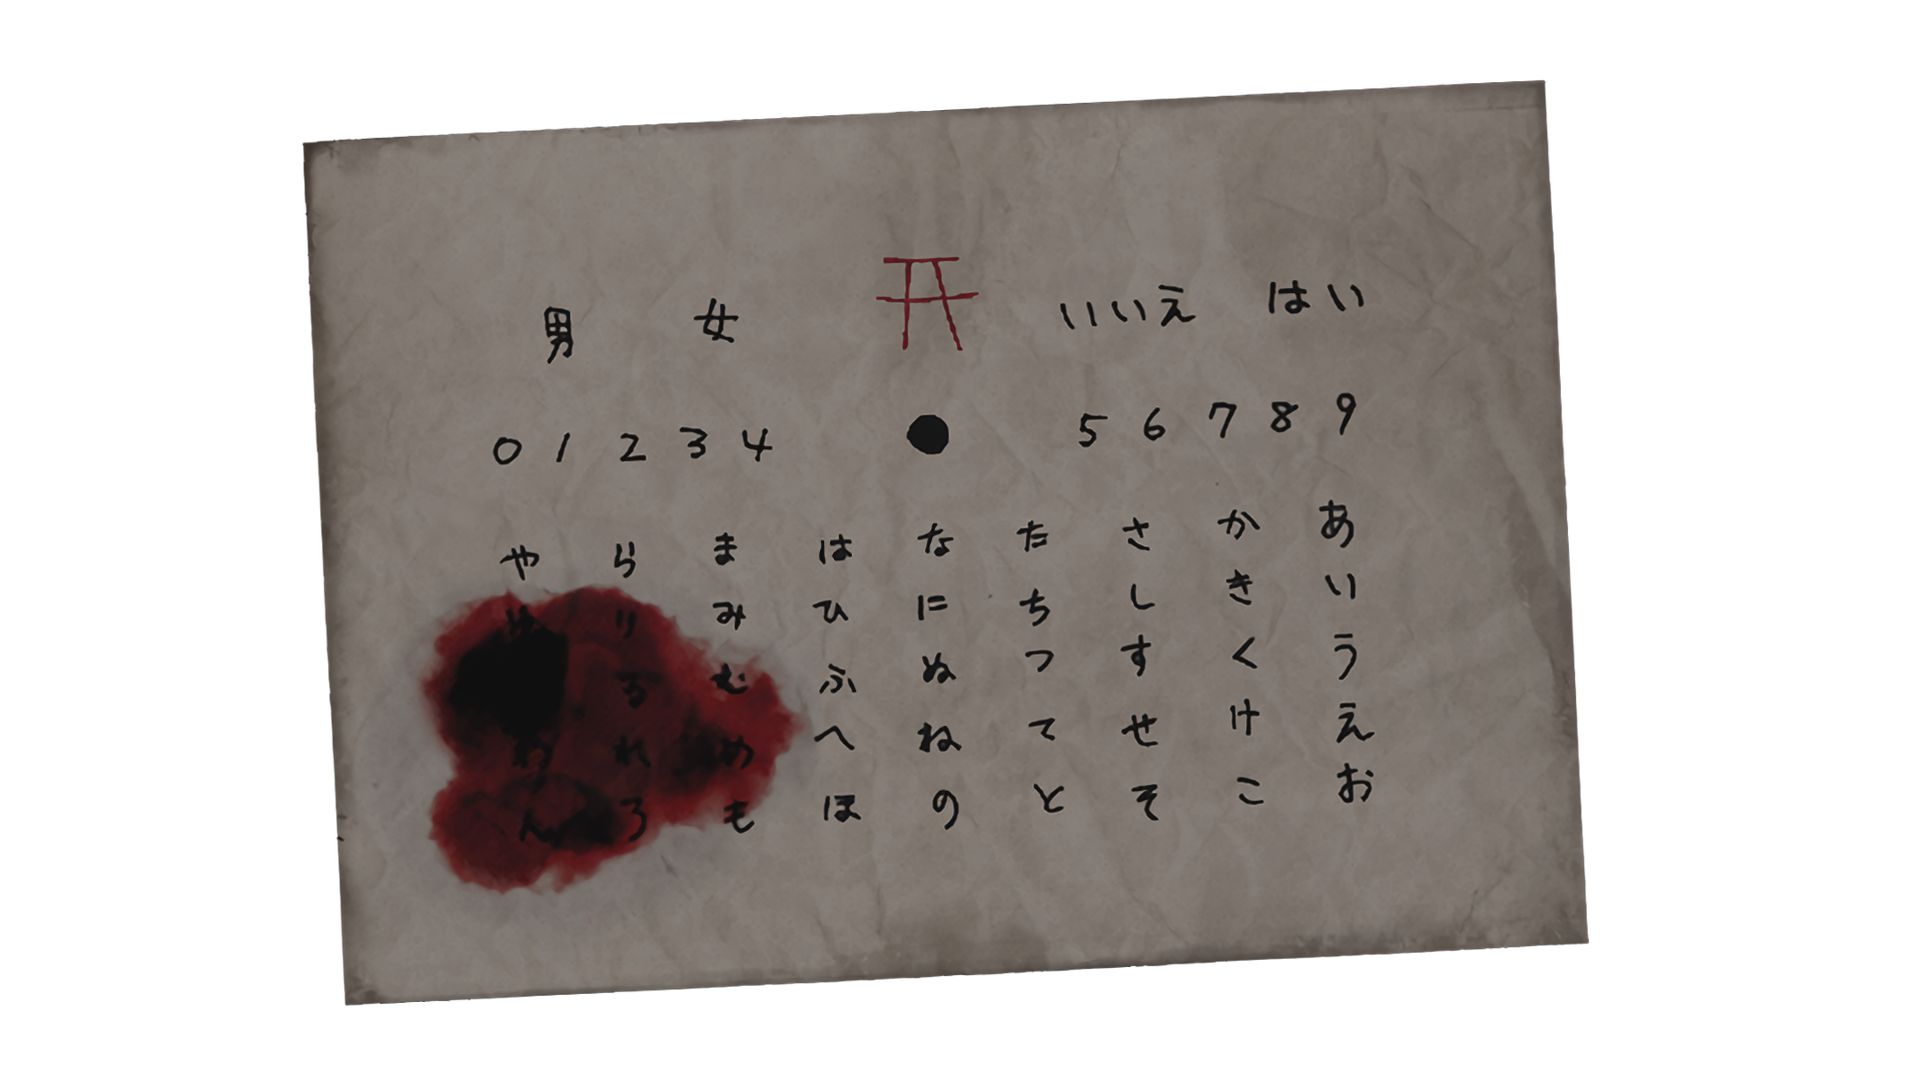 男 女 いいえ はい
0 1 2 3 4 5 6 7 8 9
や ら ま は な た さ か あ
ゆ り み ひ に ち し き い
る む ふ ぬ つ す く う
わ れ め へ ね て せ け え
ん ろ も ほ の と そ こ お